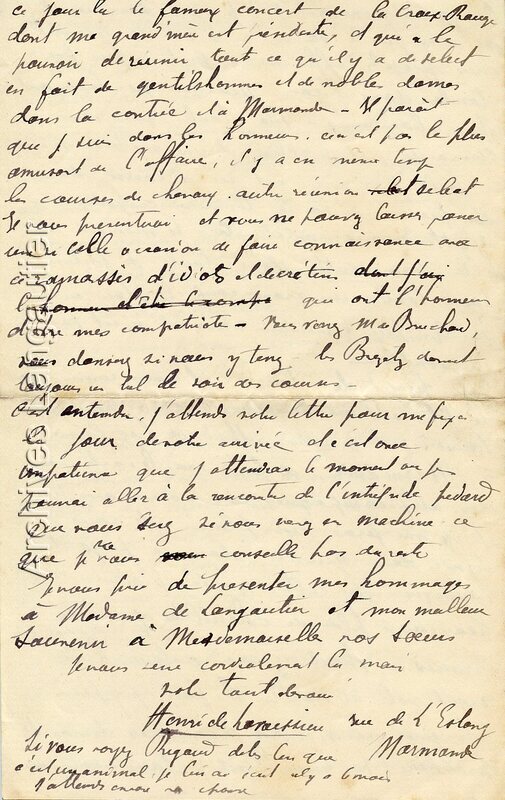 ce jour là le fameux concert de la Croix Rouge
dont ma grand'mère est présidente, et qui a le
pouvoir de réunir tout ce qu'il y a de select
en fait de gentilshommes et de nobles dames
dans la contrée et à Marmande – Il paraît
que je suis dans les honneurs. ce n'est pas le plus
amusant de l'affaire, il y a en même temps
les courses de chevaux. autre réunion select
Je vous présenterai et vous ne pouvez laisser passer
une si belle occasion de faire connaissance avec
ce ramassis d'idiots et de crétins dont j'ai
l'honneur d'être qui ont l'honneur
d'être mes compatriotes – Vous verrez
vous danserez si vous y tenez les donnent
toujours un bal le soir des courses –
C'est entendu, j'attends votre lettre pour me fixer
jour de votre arrivée et c'est avec
impatience que j'attendrai le moment où je
pourrai aller à la rencontre de l'intrépide pédard
que vous êtes si vous venez en machine ce
que je ne vous conseille pas du reste
Je vous prie de présenter mes hommages
à Madame de Langautier et mon meilleur
souvenir à Mesdemoiselle vos soeurs
Je vous serre cordialement la main
votre tout dévoué
Henri de rue de L'Estang
Marmande
Si vous voyez Rigaud dites lui que
c'est un animal, je lui ai écrit il y a 6 mois
j'attends encore
Archives Langautier